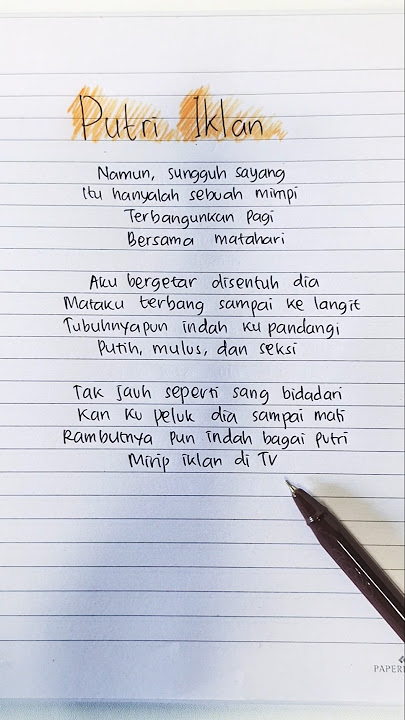 Putri Iklan
Namun, sungguh sayang
Itu hanyalah sebuah mimpi
Terbangunkan Pagi
Bersama matahari
Aku bergetar disentuh dia
Mataku terbang sampai ke langit
Tubuhnyapun indah ku pandangi
Putih, mulus, dan seksi
Tak Jauh seperti sang bidadari
Kan Ku peluk dia sampai mati
Rambutnya Pun indah bagai putri
Mirip iklan di TV